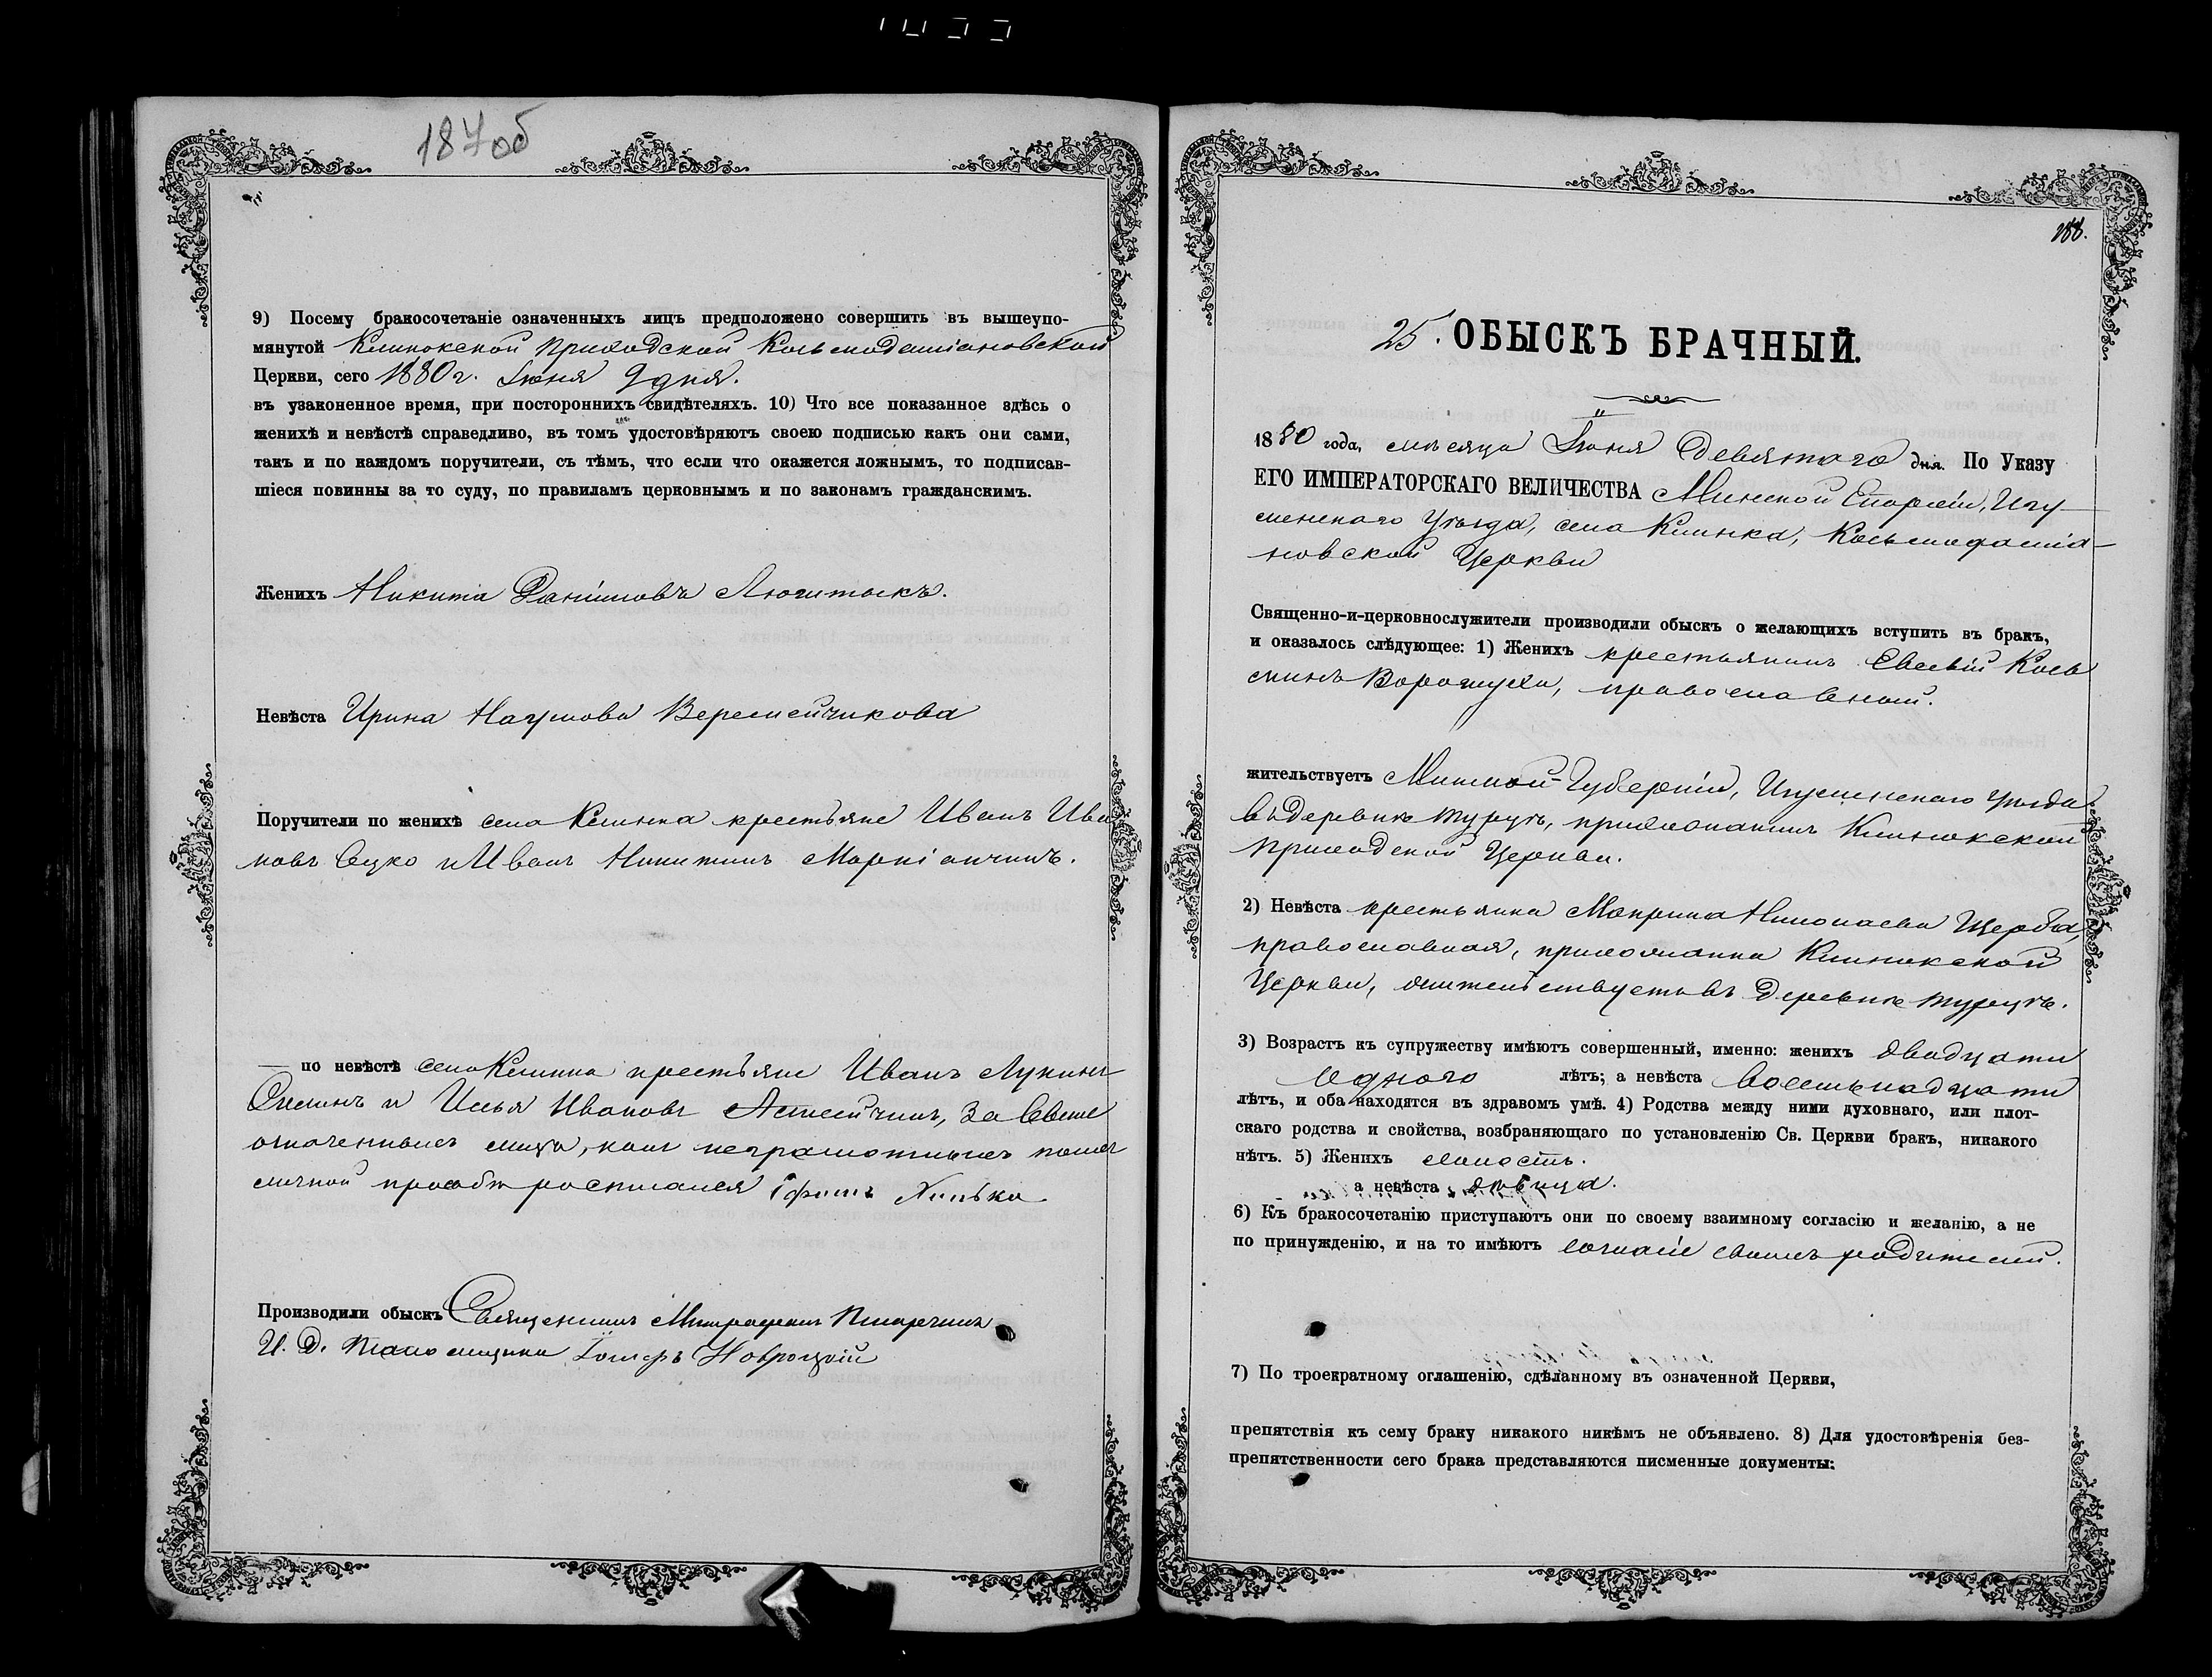 187об
9) Посему бракосочетаніе означенныхъ лицъ предположено совершить въ вышеупо-
мянутой Клинокской приходской Косьмодаміановской
Церкви, сего 1880 г. Іюня 9 дня.
въ узаконенное время, при постороннихъ свидѣтеляхъ. 10) Что все показанное здѣсь о
женихѣ и невѣстѣ справедливо, въ томъ удостовѣряютъ своею подписью какъ они сами,
такъ и по каждомъ поручители, съ тѣмъ, что если что окажется ложнымъ, то подписав-
шіеся повинны за то суду, по правиламъ церковнымъ и по законамъ гражданскимъ.
Женихъ Никита Даніиловъ
Невѣста Ирина Наумова Веремейчикова
Поручители по женихѣ села Клинка крестьяне Иванъ Ива
новъ Сушко и Иванъ Никитинъ
— по невѣстѣ села Клинка крестьяне Иванъ Лукинъ
и Илья Ивановъ за
означенныхъ лицъ, какъ неграмотныхъ по ихъ
личной просьбѣ росписался
Производили обыскъ Священникъ Митрофанъ
И. д. Псаломщика Іосифъ Новроцкій
188.
25. ОБЫСКЪ БРАЧНЫЙ.
1880 года, мѣсяца Іюня девятаго дня. По Указу
ЕГО ИМПЕРАТОРСКАГО ВЕЛИЧЕСТВА Минской Епархіи, Игу-
менскаго уѣзда, села Клинка, Косьмодаміа-
новской Церкви
Священно-и-церковнослужители производили обыскъ о желающихъ вступить въ бракъ,
и оказалось слѣдующее: 1) Женихъ крестьянинъ Евсевій Кось
минъ Ворожуха, православный.
жительствуетъ Минской Губерніи, Игуменскаго уѣзда
въ деревнѣ Турецъ, прихожанинъ Клинокской
приходской Церкви.
2) Невѣста крестьянка Макрина Николаева Щерба,
православная, прихожанка Клинокской
Церкви, жительствуетъ въ деревнѣ Турецъ.
3) Возрастъ къ супружеству имѣютъ совершенный, именно: женихъ двадцати
одного лѣтъ; а невѣста восемьнадцати
лѣтъ, и оба находятся въ здравомъ умѣ. 4) Родства между ними духовнаго, или плот-
скаго родства и свойства, возбраняющаго по установленію Св. Церкви бракъ, никакого
нѣтъ. 5) Женихъ холостъ.
а невѣста дѣвица.
6) Къ бракосочетанію приступаютъ они по своему взаимному согласію и желанію, а не
по принужденію, и на то имѣютъ согласіе своихъ родителей.
7) По троекратному оглашенію, сдѣланному въ означенной Церкви,
препятствія къ сему браку никакого никѣмъ не объявлено. 8) Для удостовѣренія без-
препятственности сего брака представляются писменные документы: